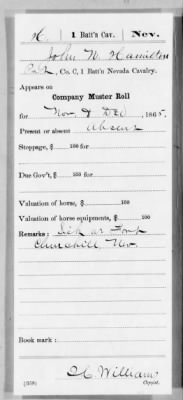 H | 1 Batt's Cav. | Nev.
John W. Hamilton
Pvt, Co. C, 1 Batt'n Nevada Cavalry.
Appears on
Company Muster Roll
for Nov & Dec, 1865.
Present or absent Absent
Stoppage, $ 100 for
Due Gov't, $ 100 for
Valuation of horse, $ 100
Valuation of horse equipments, $ 100
Remarks: Sick at Fort
Churchill, Nev.
Book mark:
(358) Williams
Copyist.